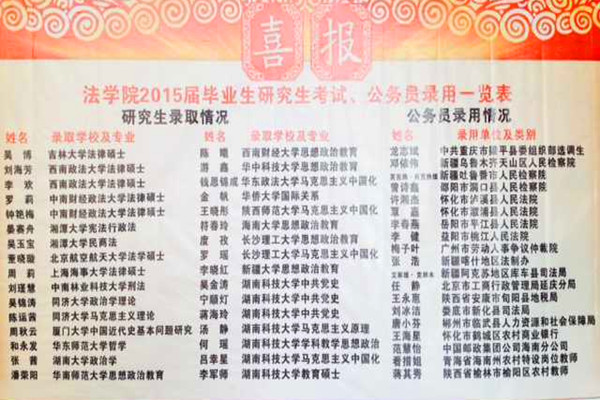 喜报
法学院2015届毕业生研究生考试、公务员录用一览表
研究生录取情况 公务员录用情况
姓名 录取学校及专业 姓名 录取学校及专业 姓名 录用单位及类别
吴博 吉林大学法律硕士 陈曦 西南财经大学思想政治教育 龙志斌 中共重庆市梁平县委组织部选调生
刘海芳 西南政法大学法律硕士 游鑫 华中科技大学思想政治教育 邓依伟 新疆乌鲁木齐天山区人民检察院
李欢 西南政法大学法律硕士 钱思锦成 华东政法大学马克思主义中国化 新疆吐鲁番市人民检察院
罗莉 中南财经政法大学法律硕士 金帆 华侨大学国际关系 曾诗鑫 邵阳市洞口县人民检察院
钟艳梅 中南财经政法大学法律硕士 王晓彤 陕西师范大学马克思主义中国化 许湘杰 怀化市泸溪县人民法院
晏赛舟 湘潭大学宪法行政法 符春玲 海南大学思想政治教育 覃嘉 怀化市溆浦县人民法院
吴玉宝 湘潭大学民商法 庹孜 长沙理工大学思想政治教育 李春燕 岳阳市平江县人民法院
童晓璇 北京航空航天大学法律硕士 罗瑶 长沙理工大学马克思主义中国化 李健 益阳市桃江县人民法院
周莉 上海海事大学法律硕士 李晓红 新疆大学思想政治教育 梅子叶 广州市劳动人事争议仲裁院
刘瑾慧 中南林业科技大学刑法 吴金涛 湖南科技大学中共党史 张浩 新疆喀什地区法制办
吴锦涛 同济大学政治学理论 宁顺灯 湖南科技大学中共党史 新疆阿克苏地区库车县司法局
陈运茜 同济大学马克思主义理论 蒋海玲 湖南科技大学中共党史 任静 北京市工商行政管理局延庆分局
周秋云 厦门大学中国近代史基本问题研究 汤静 湖南科技大学马克思主义原理 王永惠 陕西省安康市旬阳县地税局
和永发 华东师范大学哲学 何瑶 湖南科技大学学科教学思想政治教育 刘冰洁 娄底市新化县司法局
张茜 湖南大学政治学 吕幸星 湖南科技大学马克思主义中国化 唐小芬 郴州市临武县人力资源和社会保障局
潘荣阳 华南师范大学思想政治教育 李军师 湖南科技大学教育硕士 王海星 怀化市鹤城区农村商业银行
范慧怡 中国邮政集团公司海南分公司
看措姐 青海省海南州农村特设岗位教师
蒋其秀 陕西省榆林市榆阳区农村教师